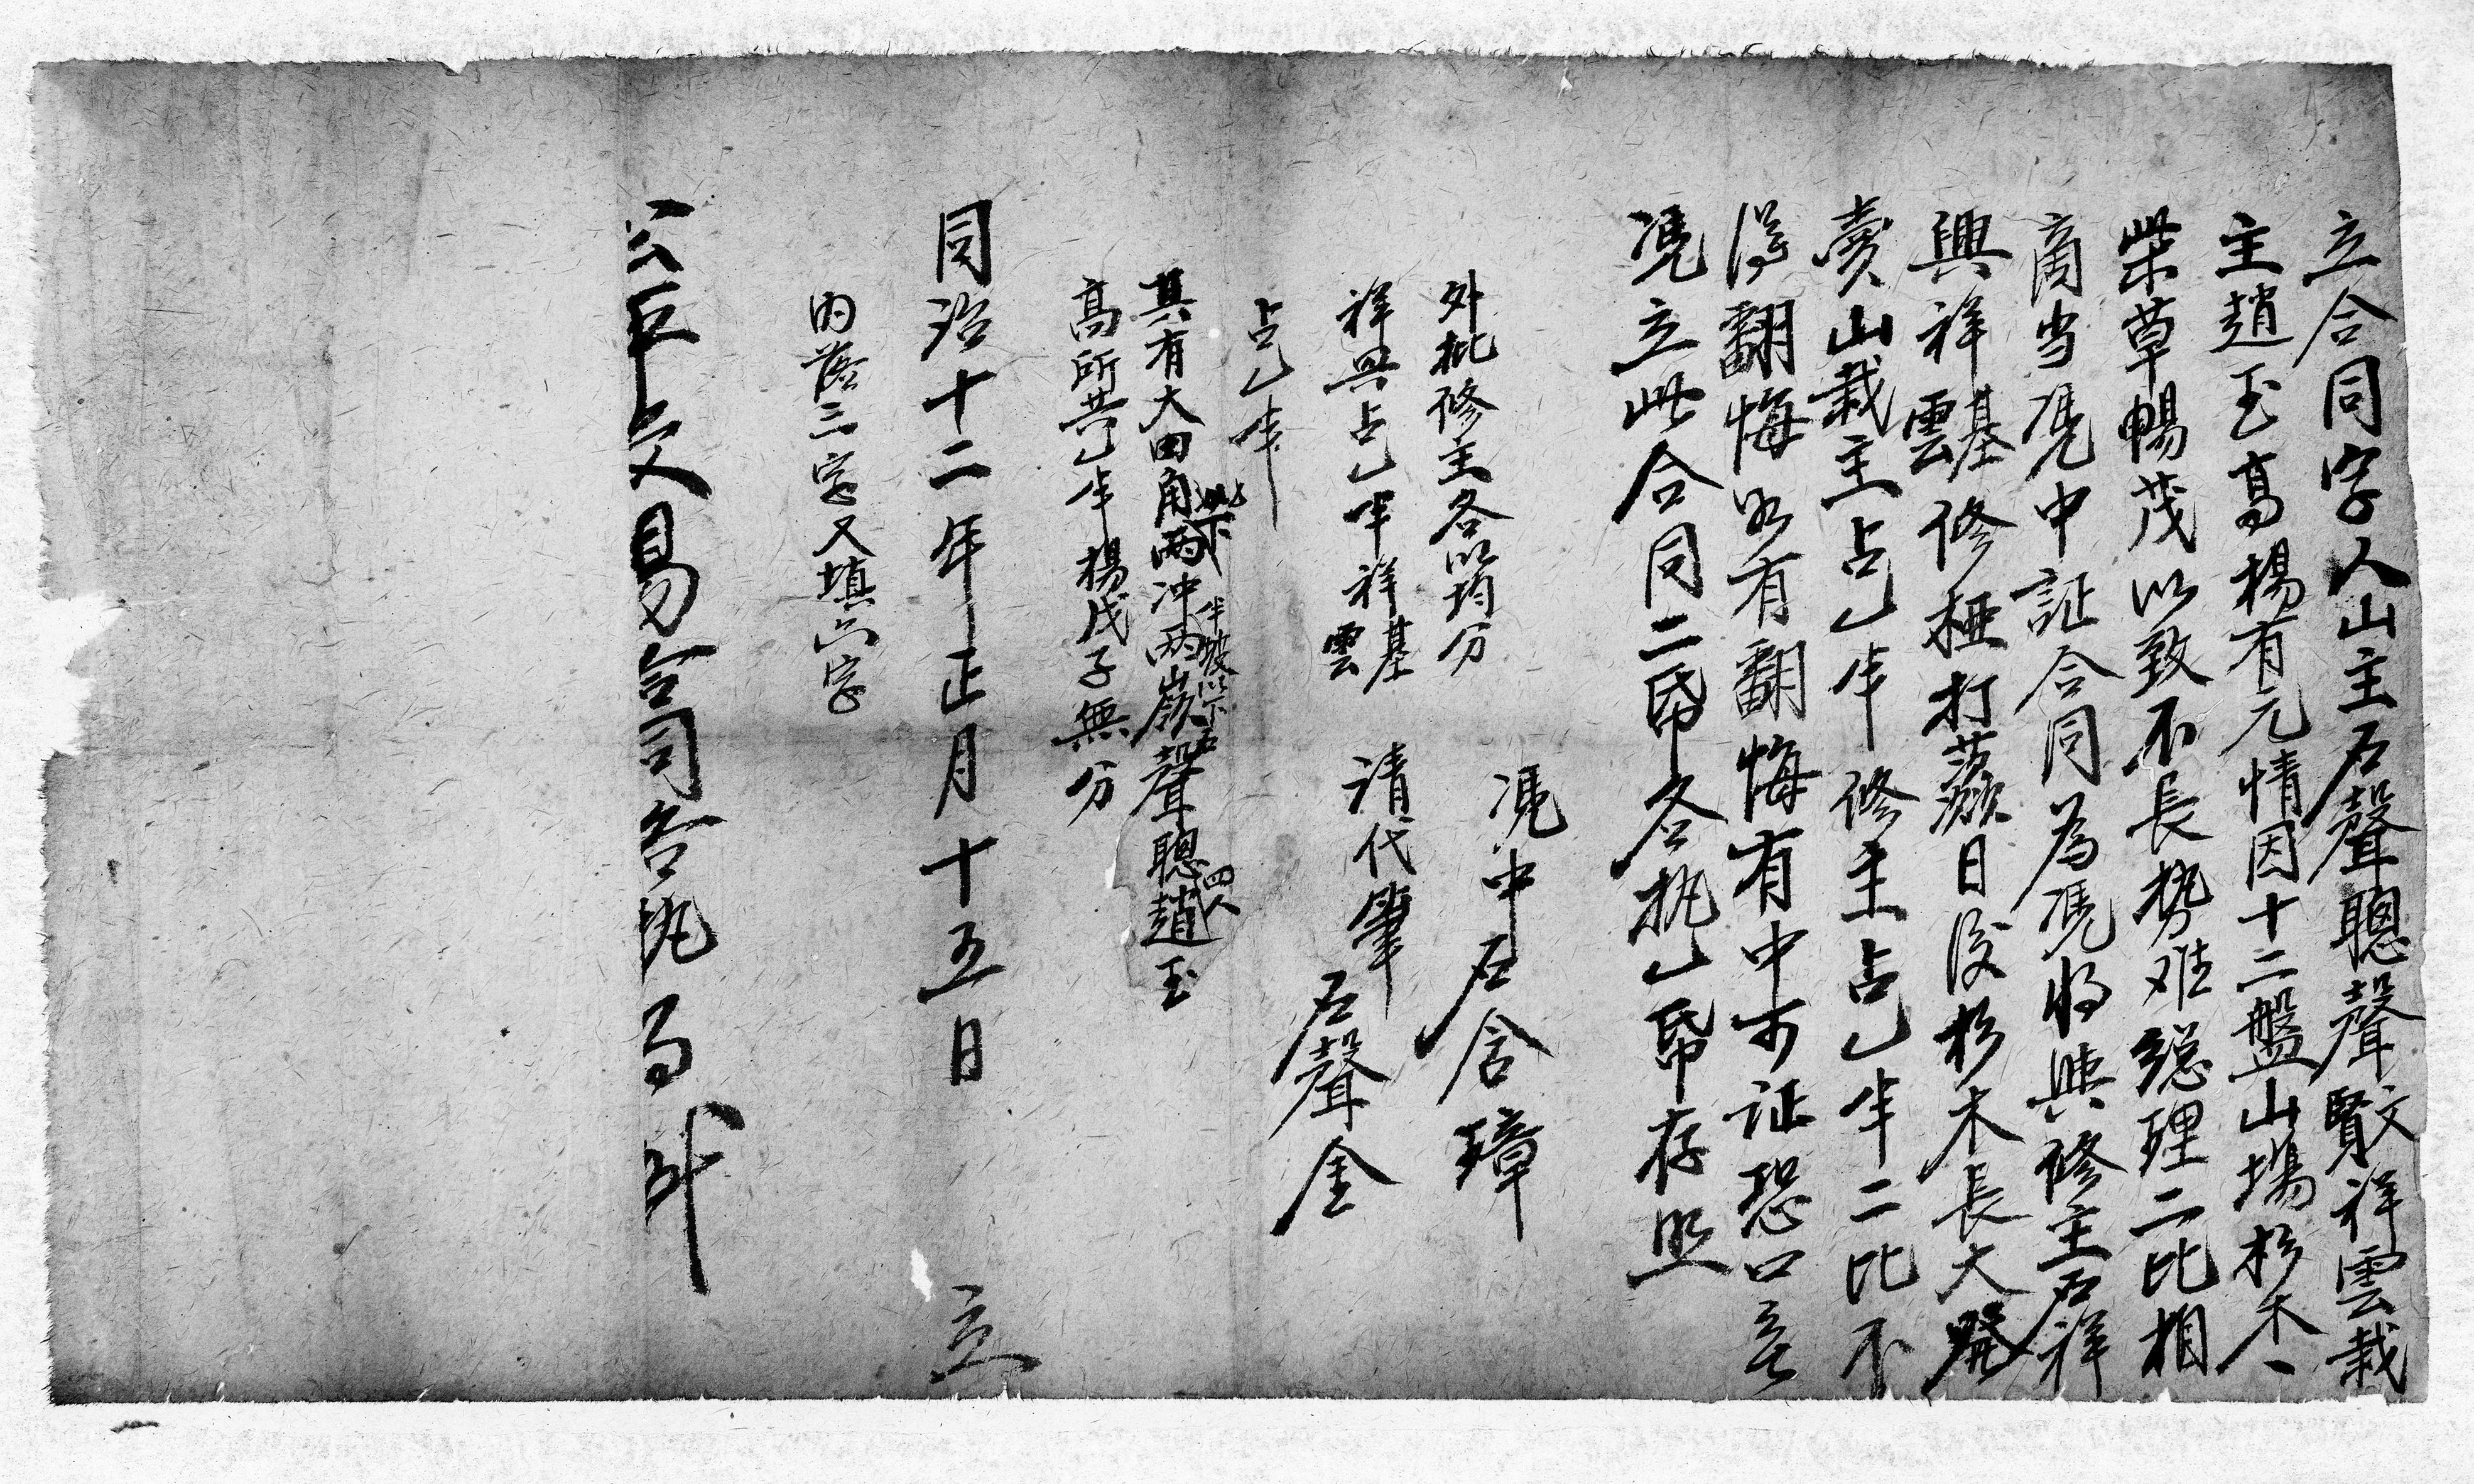 立合同字人山主石聲聰聲賢文祥雲栽
主趙玉高楊有元情因十二盤山塲杉木
柴草暢茂以致不長势难總理二比相
商当凴中証合同為凴將與修主石祥
興祥雲基修極打蔸日後杉木長大發
賣山栽主占乙半修主占乙半二比不
得翻悔如有翻悔有中可证恐口無
凴立此合同二帋各执乙帋存照
凴中石含璋
外批修主各以均分
祥興占乙半祥雲基
占乙半
請代筆石聲金
柴下半坡以下石四人
其有大田角兩冲兩嶺聲聰趙玉
高所共乙半楊戊子無分
同治十二年正月十五日立
内落三字又填六字